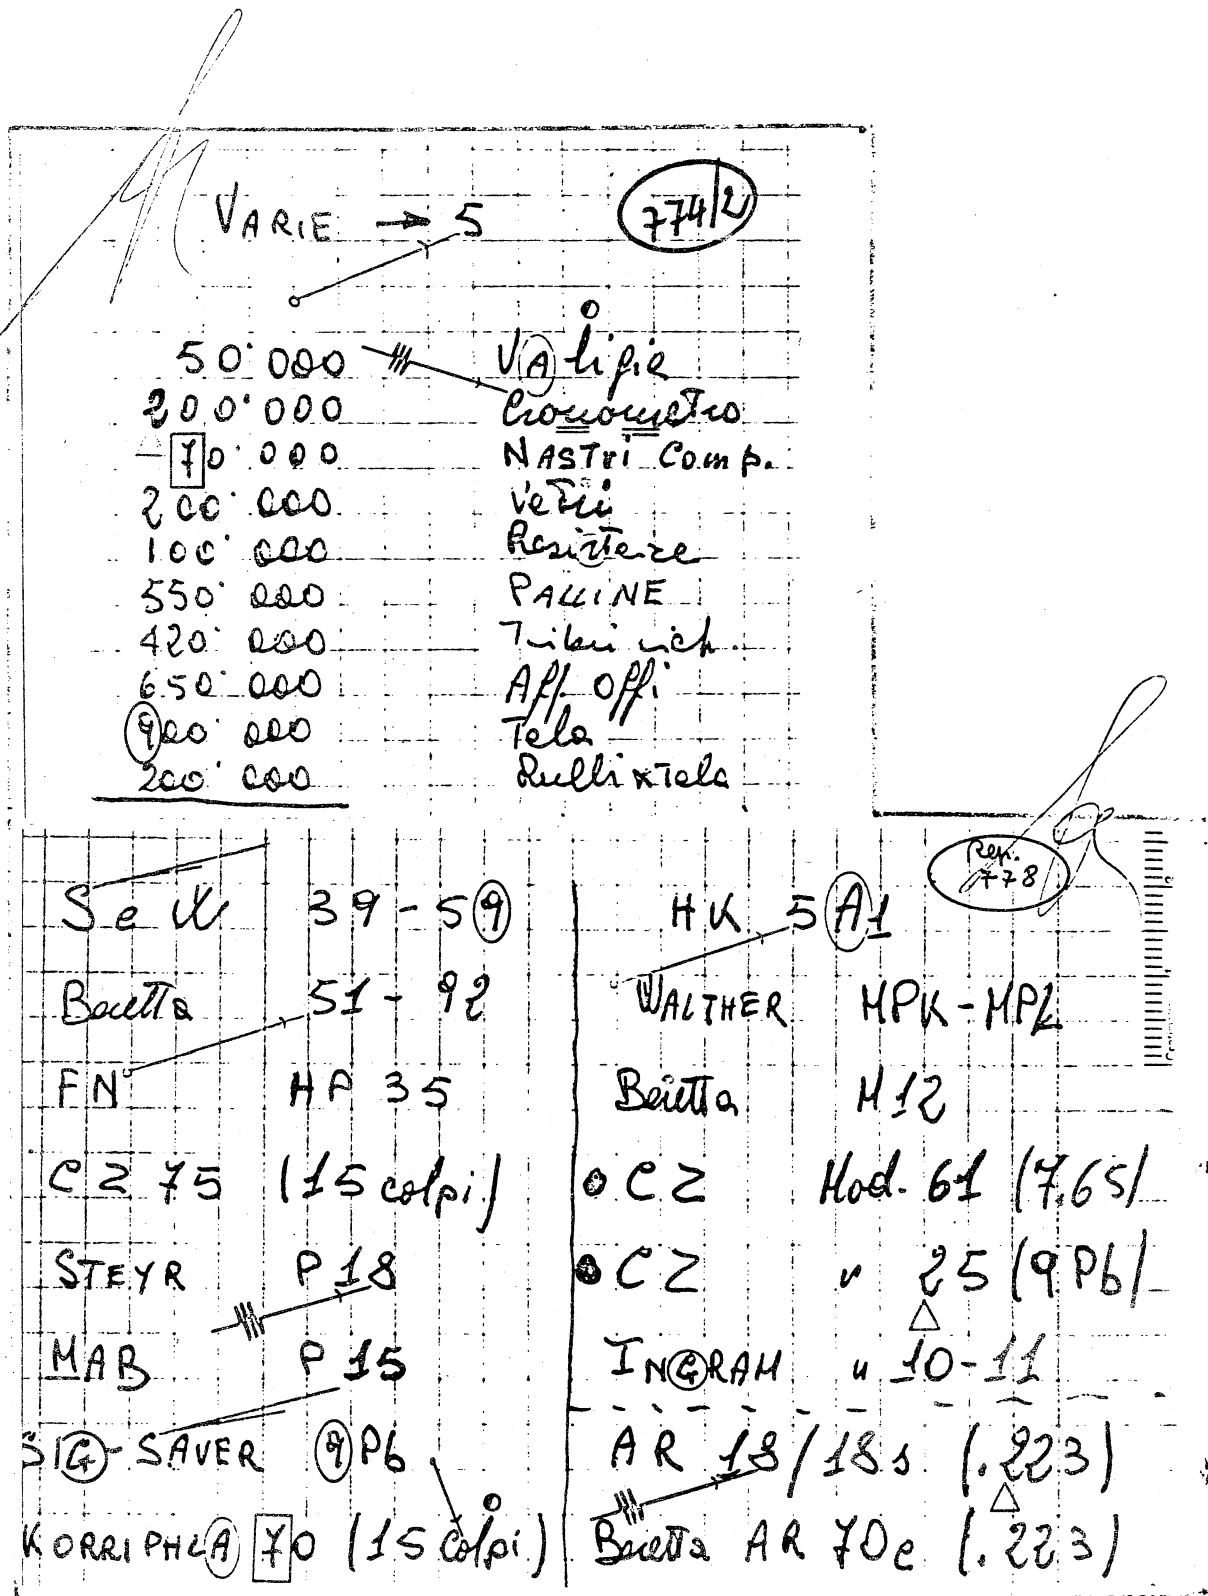 VARIE → 5
774/2
50'000 VAligie
200'000 Cronometro
70'000 NASTri Comp.
200'000 Vetrii
100'000 Resistenze
550'000 PALLINE
420'000
650'000 Aff. offi
900'000 Tela
200'000 Rulli x Tela
Rep. 778
S e W 39-59
Beretta 51-92
FN HP 35
CZ 75 (15 colpi)
STEYR P18
MAB P15
SIG-SAVER 9Pb
KORRIPHLA 70 (15 colpi)
HK 5A1
WALTHER MPK-MPL
Beretta M12
CZ Mod. 61 (7.65)
CZ " 25 (9Pb)
INGRAM " 10-11
AR 18/18s (.223)
Beretta AR 70e (.223)